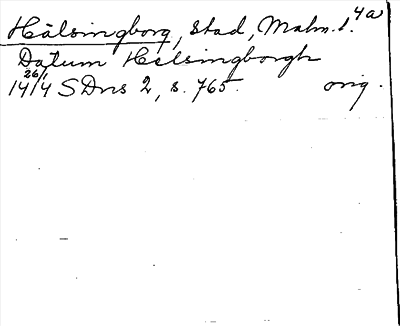 Hälsingborg, stad, Malm. l. 4a
Datum Helsingborgh
14 26/1 14 SDns 2, s. 765. orig.